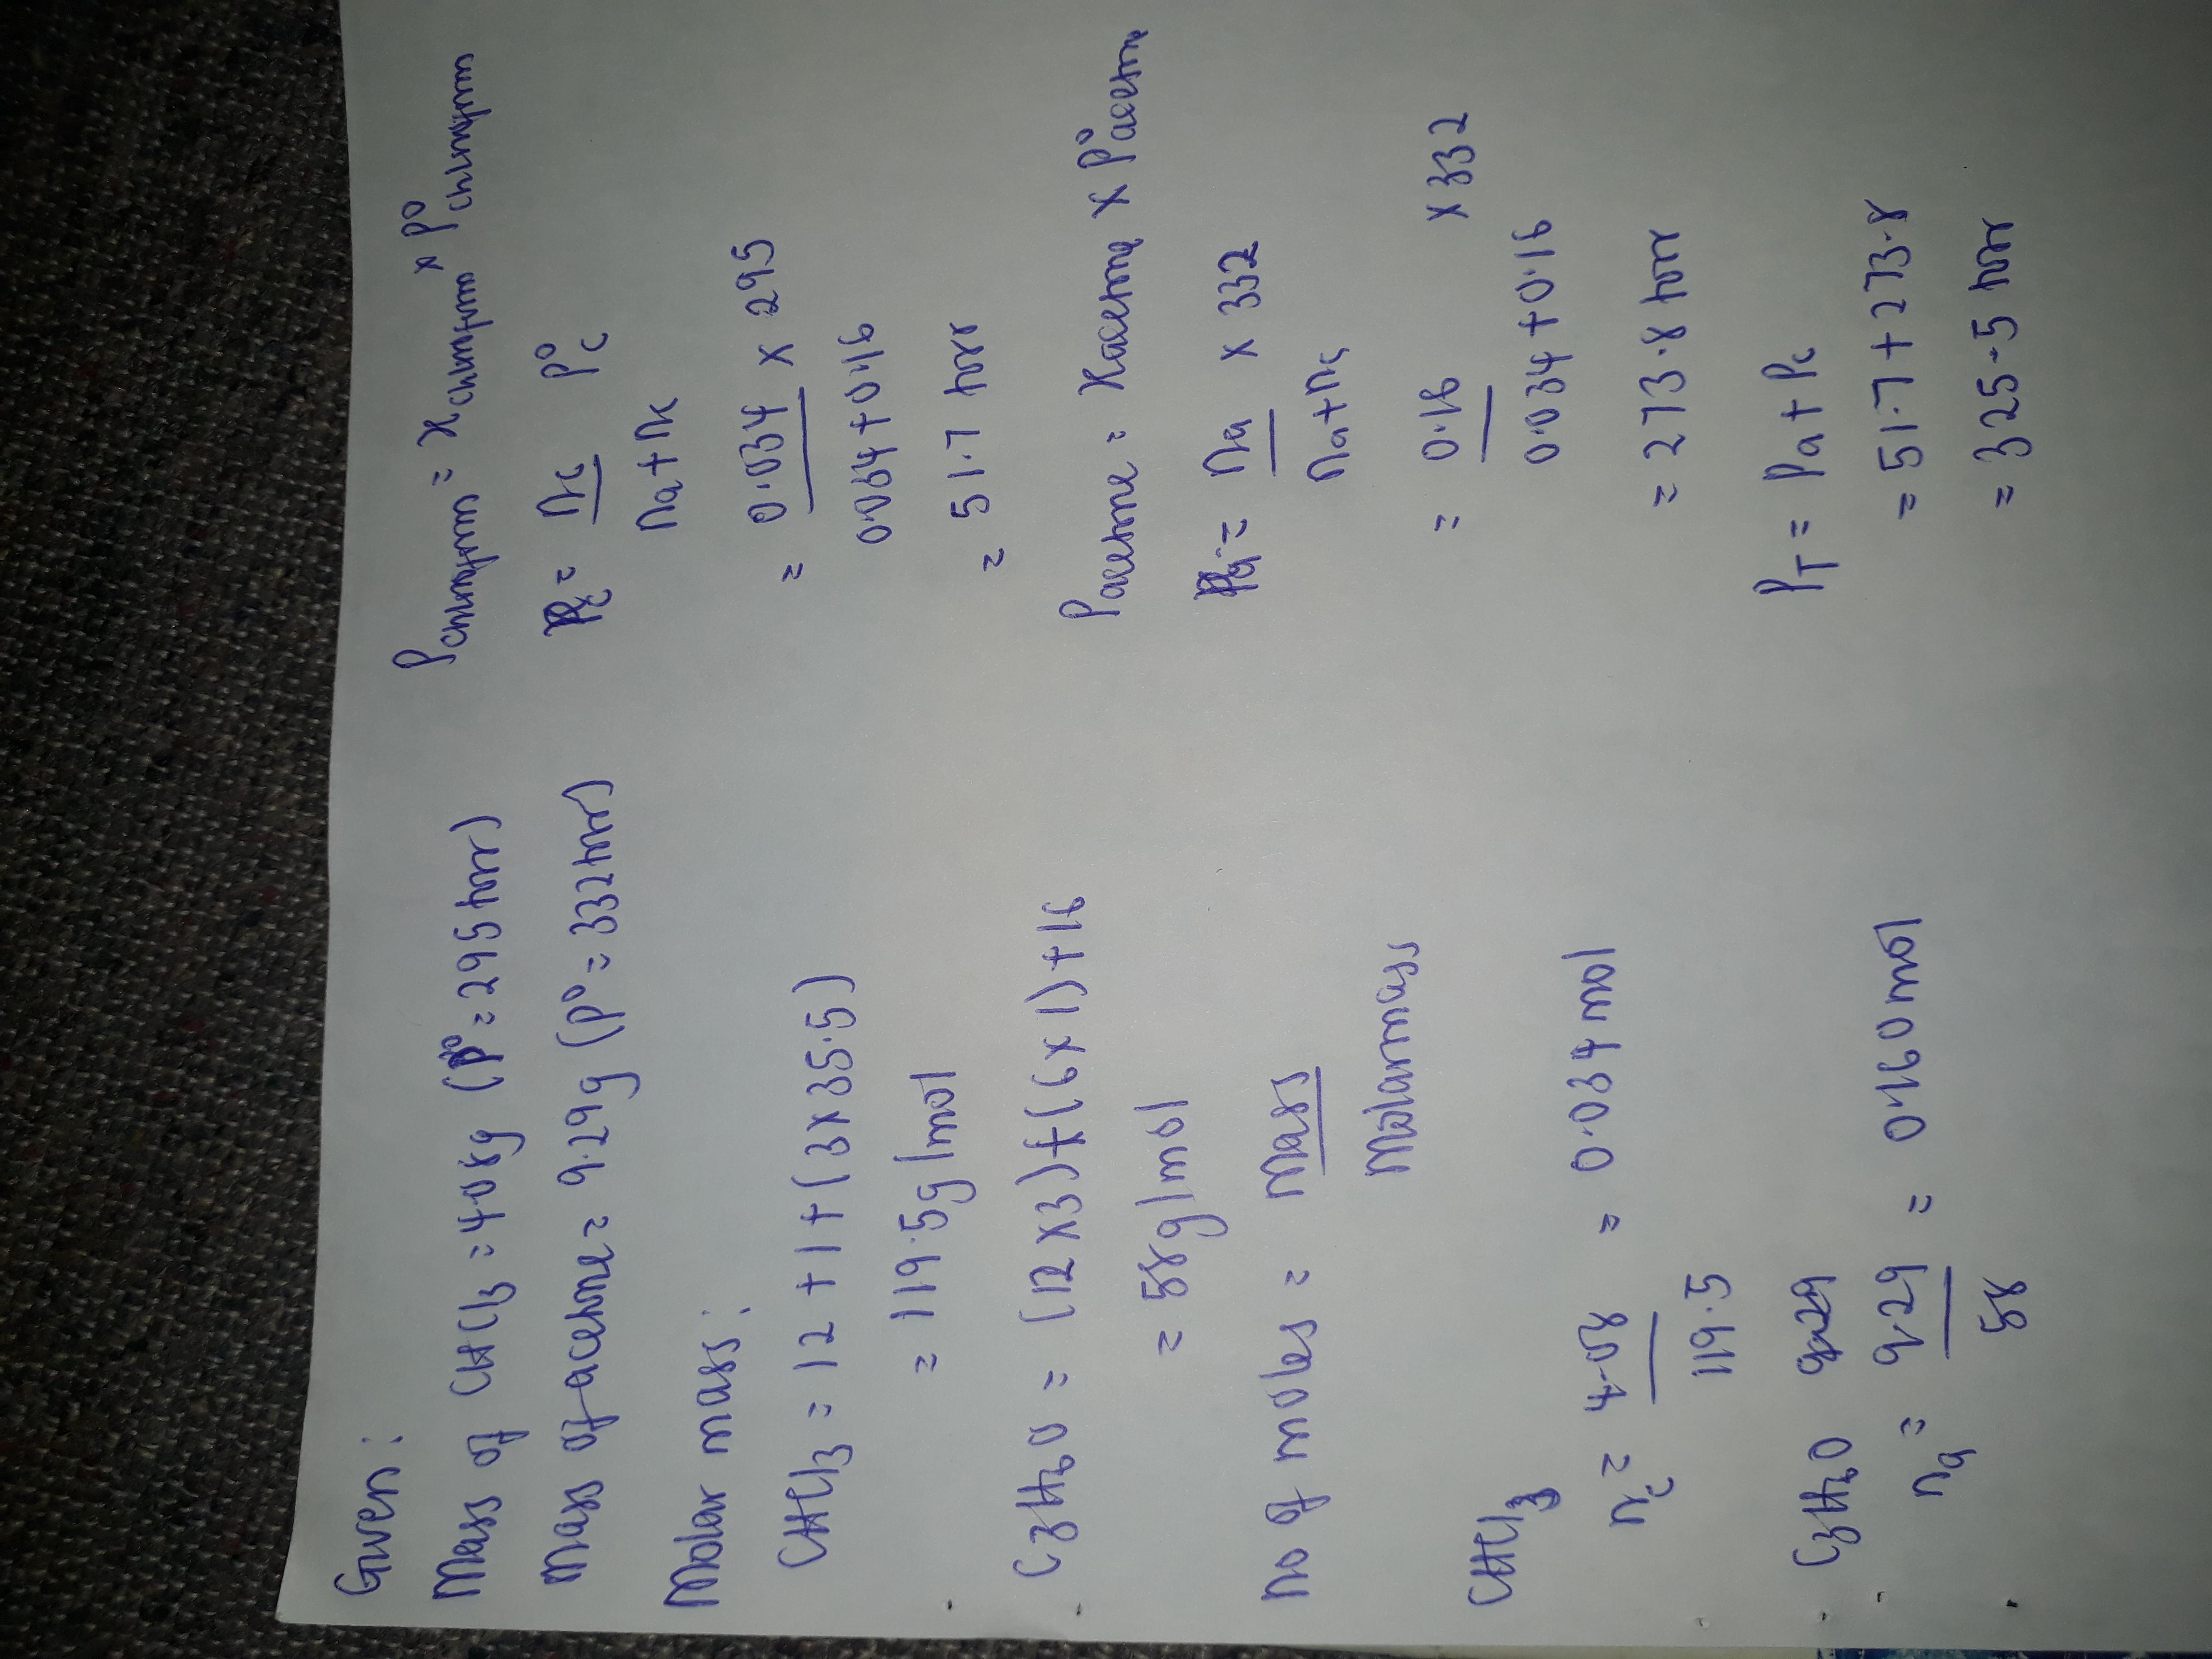 Given:
Mass of CHCl3 = 4.08g (P° = 295 torr)
Mass of acetone = 9.29g (P° = 332 torr)
Molar mass:
CHCl3 = 12 + 1 + (3 x 35.5)
= 119.5g/mol
C3H6O = (12 x 3) + (6 x 1) + 16
= 58g/mol
no of moles = Mass
Molarmass
CHCl3
nc = 4.08
119.5
= 0.034 mol
C3H6O
na = 9.29
58
= 0.160 mol
Pchloroform = xchloroform x P°chloroform
Pc = nc P°c
na + nc
= 0.034 x 295
0.034 + 0.16
= 51.7 torr
Pacetone = xacetone x P°acetone
Pa = na x 332
na + nc
= 0.16 x 332
0.034 + 0.16
= 273.8 torr
PT = Pa + Pc
= 51.7 + 273.8
= 325.5 torr